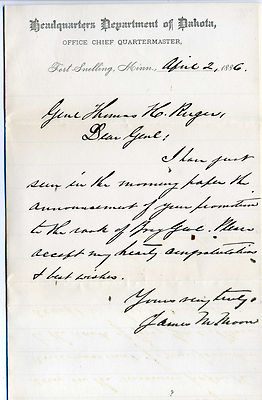 Headquarters Department of Dakota,
OFFICE CHIEF QUARTERMASTER,
Fort Snelling, Minn., April 2, 1886.
Genl Thomas H. Ruger,
Dear Genl;
I have just
seen in the morning paper the
announcement of your promotion
to the rank of Brig Genl. Please
accept my hearty congratulations
& best wishes.
Yours very truly
James M. Moore